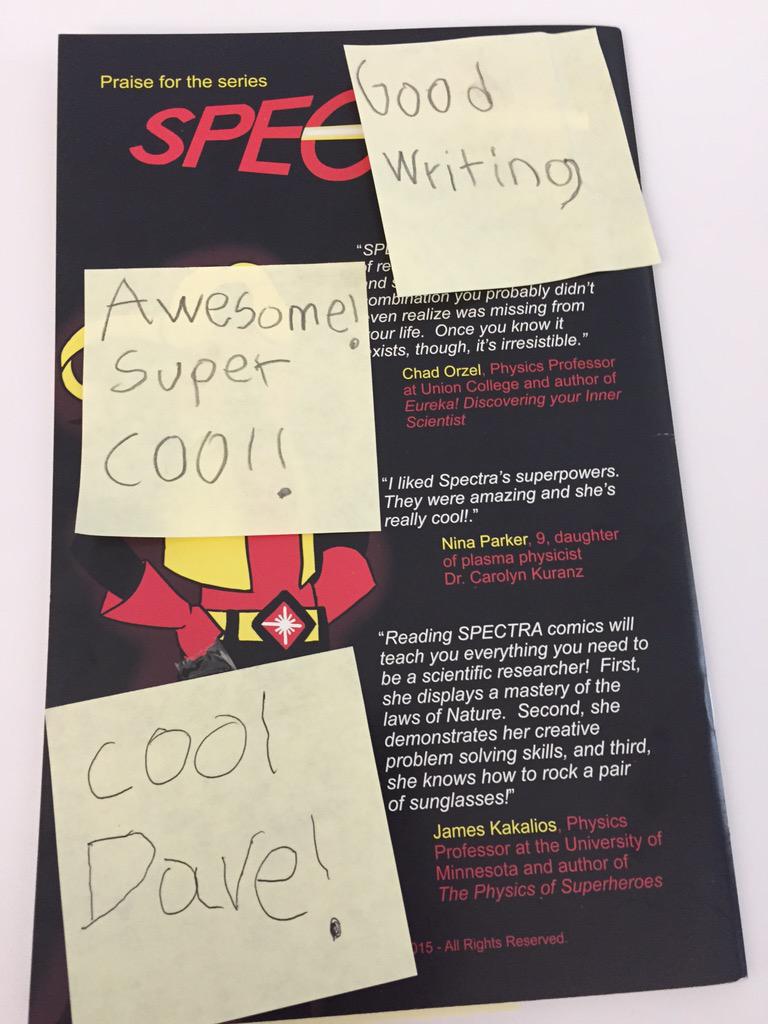 Praise for the series
Good
Writing
Awesome!
Super
COOl!
ombination you probably didn't
ven realize was missing from
our life. Once you know it
xists, though, it's irresistible."
Chad Orzel, Physics Professor
at Union College and author of
Eureka! Discovering your Inner
Scientist
"I liked Spectra's superpowers.
They were amazing and she's
really cool!."
Nina Parker, 9, daughter
of plasma physicist
Dr. Carolyn Kuranz
"Reading SPECTRA comics will
teach you everything you need to
be a scientific researcher! First,
she displays a mastery of the
laws of Nature. Second, she
demonstrates her creative
problem solving skills, and third,
she knows how to rock a pair
of sunglasses!"
James Kakalios, Physics
Professor at the University of
Minnesota and author of
The Physics of Superheroes
cool
Dave!
015 - All Rights Reserved.